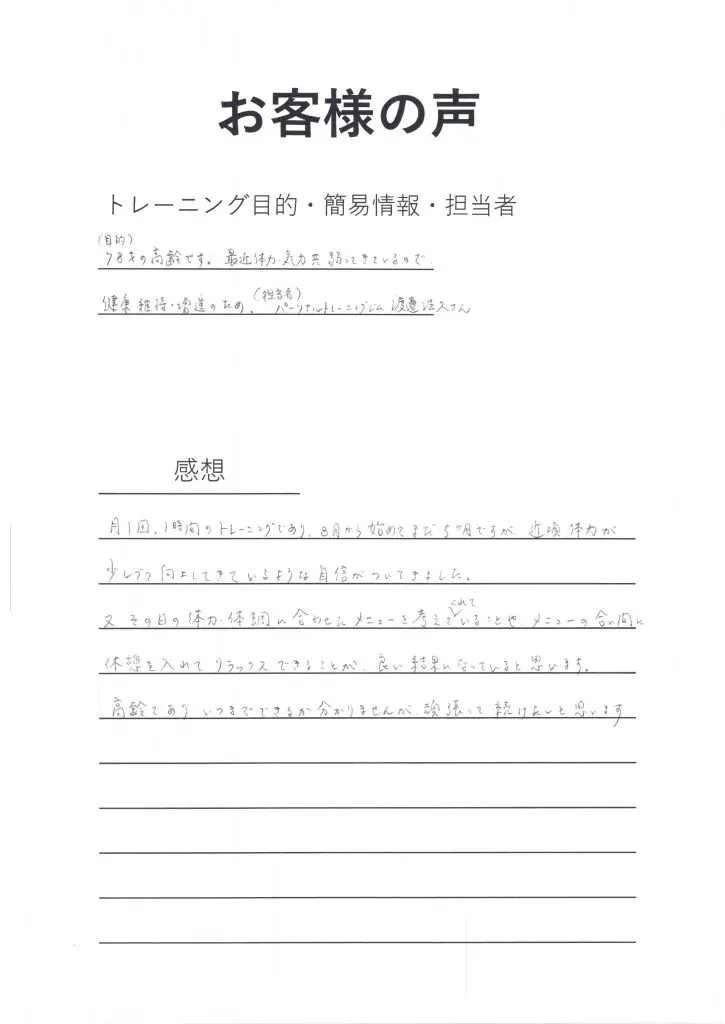 お客様の声
トレーニング目的・簡易情報・担当者
(目的)
78才の高齢です。最近体力・気力共弱ってきているので、
健康維持・増進のため。(担当者)パーソナルトレーニングジム 渡邉法久さん
感想
月1回、1時間のトレーニングであり、8月から始めてまだ5ヶ月ですが、近頃体力が
少しづつ向上してきているような自信がついてきました。
又その日の体力・体調に合わせたメニューを考えてくれていることやメニューの合い間に
休憩を入れてリラックスできることが、良い結果になっていると思います。
高齢であり いつまでできるか分かりませんが、頑張って続けたいと思います